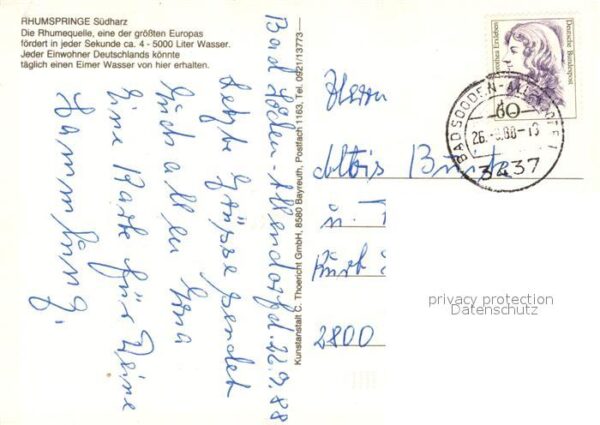 RHUMSPRINGE Südharz
Die Rhumequelle, eine der größten Europas
fördert in jeder Sekunde ca. 4 - 5000 Liter Wasser.
Jeder Einwohner Deutschlands könnte
täglich einen Eimer Wasser von hier erhalten.
Bad Soden-Allendorf d. 22.9.88
Letzte Grüsse sendet
Euch allen Erna
Eine Karte für Deine
Sammlung.
Kunstanstalt C. Thoericht GmbH, 8580 Bayreuth, Postfach 1163, Tel. 0921/13773
Dorothea Erxleben
Deutsche Bundespost
60
BAD SOODEN-ALLENDORF 1
3437
Herrn
Alois
u.
Kurt
2800
privacy protection
Datenschutz